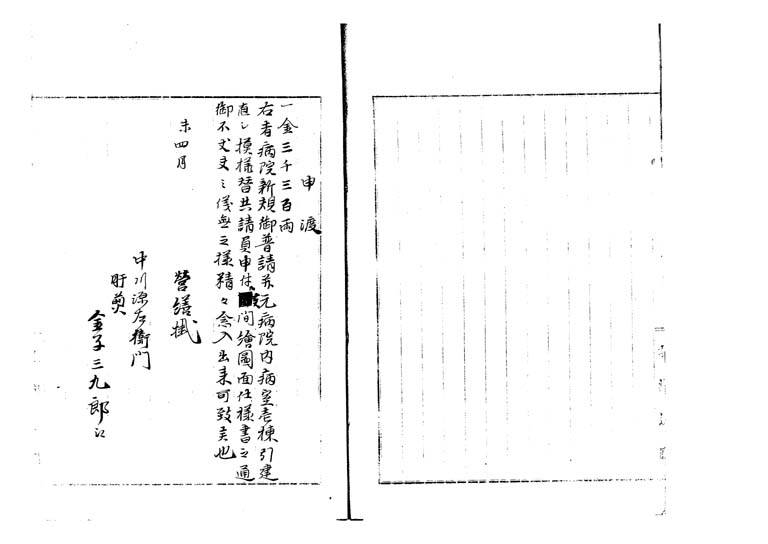 申渡
一金三千三百両
右者病院新規御普請并元病院内病室壱棟引建
直シ模様替共請負申付候間絵図面仕様書之通
御不丈夫之儀無之様精々念入出来可致もの也
未四月
営繕掛
中川源左衛門
肝煎
金子三九郎江